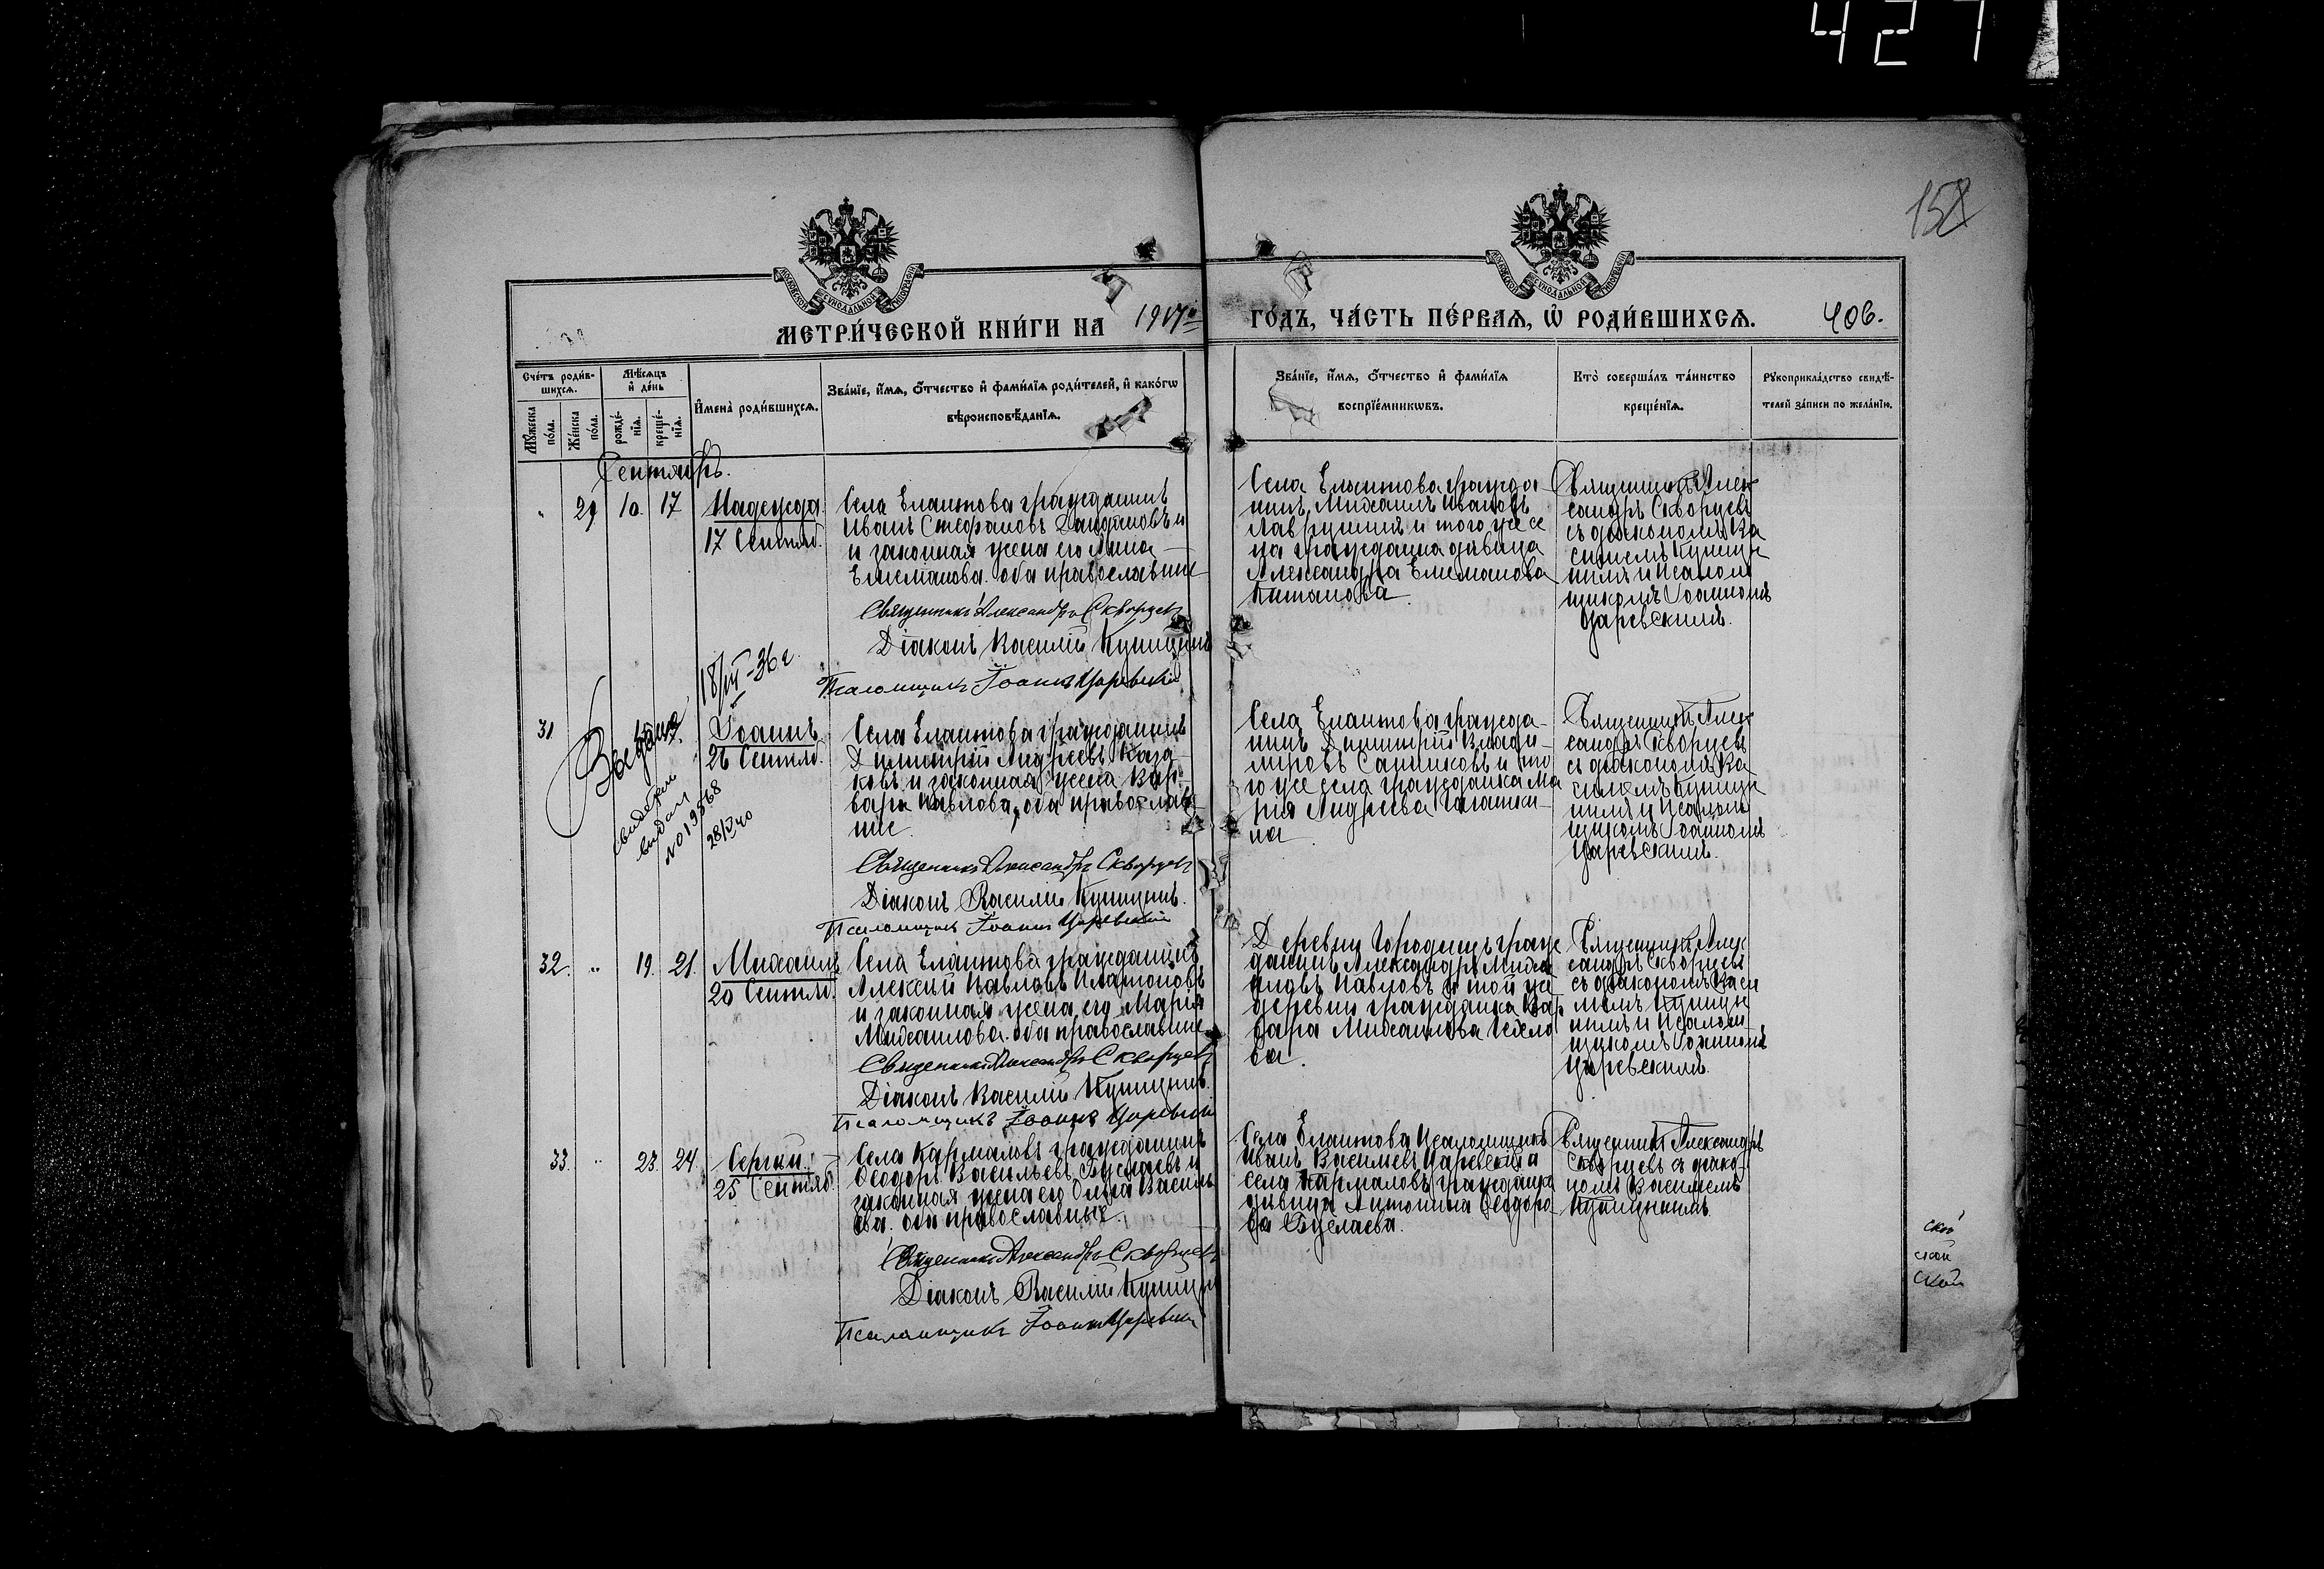 427
158
МОСКОВСКОЙ СѴНОДАЛЬНОЙ ТИПОГРАФІИ
МОСКОВСКОЙ СѴНОДАЛЬНОЙ ТИПОГРАФІИ
МЕТРИ́ЧЕСКОЙ КНИ́ГИ НА 1917й ГО́ДЪ, ЧА́СТЬ ПЕ́РВАѦ, Ѡ҆ РОДИ́ВШИХСѦ.
406.
Сче́тъ роди́в-
шихсѧ.
Мꙋ́жеска
по́ла.
Же́нска
по́ла.
Мѣ́сѧцъ
и҆ де́нь
рожде́-
нїѧ.
креще́-
нїѧ.
И҆мена̀ роди́вшихсѧ.
Зва́нїе, и҆́мѧ, ѻ҆́тчество и҆ фами́лїѧ роди́телей, и҆ како́гѡ
вѣроисповѣ́данїѧ.
Зва́нїе, и҆́мѧ, ѻ҆́тчество и҆ фами́лїѧ
воспрїе́мникѡвъ.
Кто̀ соверша́лъ та́инство
креще́нїѧ.
Рꙋкоприкла́дство свидѣ́-
телей за́писи по жела́нїю.
Сентябрь.
" 29 10. 17
Надежда
17 Сентяб.
Села Елаитова гражданинъ
Иванъ Стефановъ и
и законная жена его Анна
оба православные
Священникъ Александръ Скворцевъ
Діаконъ Василій Куницинъ
Псаломщикъ Іоаннъ Царевскій
Села Елаитова гражда-
нинъ Михаилъ Ивановъ
и того же се
ла гражданка дѣвица
Александра
Священникъ Алек
сандръ Скворцевъ
съ діакономъ Ва
силіемъ Куници
нымъ и псалом
щикомъ Іоанномъ
Царевскимъ.
18/III-36 г.
31
Выдана
свидетел
выдан
№019568
28/V 40
Іоаннъ
26 Сентяб.
Села Елаитова гражданинъ
Димитрій Андреевъ Каза
ковъ и законная жена Вар-
вара Павлова, оба православ
ные.
Священникъ Александръ Скворцевъ
Діаконъ Василій Куницинъ.
Псаломщикъ Іоаннъ Царевскій
Села Елаитова гражда-
нинъ Димитрій Влади-
міровъ и то
го же села гражданка Ма
рія Андреева
на
Священникъ Алек
сандръ Скворцевъ
съ діакономъ Ва
силіемъ Куници
нымъ и псалом
щикомъ Іоанномъ
Царевскимъ.
32. " 19. 21.
Михаилъ
20 Сентяб.
Села Елаитова гражданинъ
Алексій Павловъ Иларіоновъ
и законная жена его Марія
Михаилова оба православные
Священникъ Александръ Скворцевъ
Діаконъ Василій Куницинъ.
Псаломщикъ Іоаннъ Царевскій
Деревни Городищъ граж
данинъ Александръ Миха
иловъ Павловъ и той же
деревни гражданка Вар
вара Михаилова
ва.
Священникъ Алек
сандръ Скворцевъ
съ діакономъ Васи
ліемъ Куници
нымъ и псалом
щикомъ Іоанномъ
Царевскимъ.
33. " 23. 24.
Сергій.
25 Сентяб.
Села Кармаловъ гражданинъ
Ѳеодоръ Васильевъ Буслаевъ и
законная жена его Ольга Василь
ева. оба православные.
Священникъ Александръ Скворцевъ
Діаконъ Василій Куницинъ
Псаломщикъ Іоаннъ Царевскій
Села Елаитова псаломщикъ
Иванъ Васильевъ Царевскій и
села Кармаловъ гражданка
дѣвица Антонина Ѳеодоро
ва Буслаева.
Священникъ Александръ
Скворцевъ съ діако-
номъ Василіемъ
Куницинымъ.
ской
ской
ской